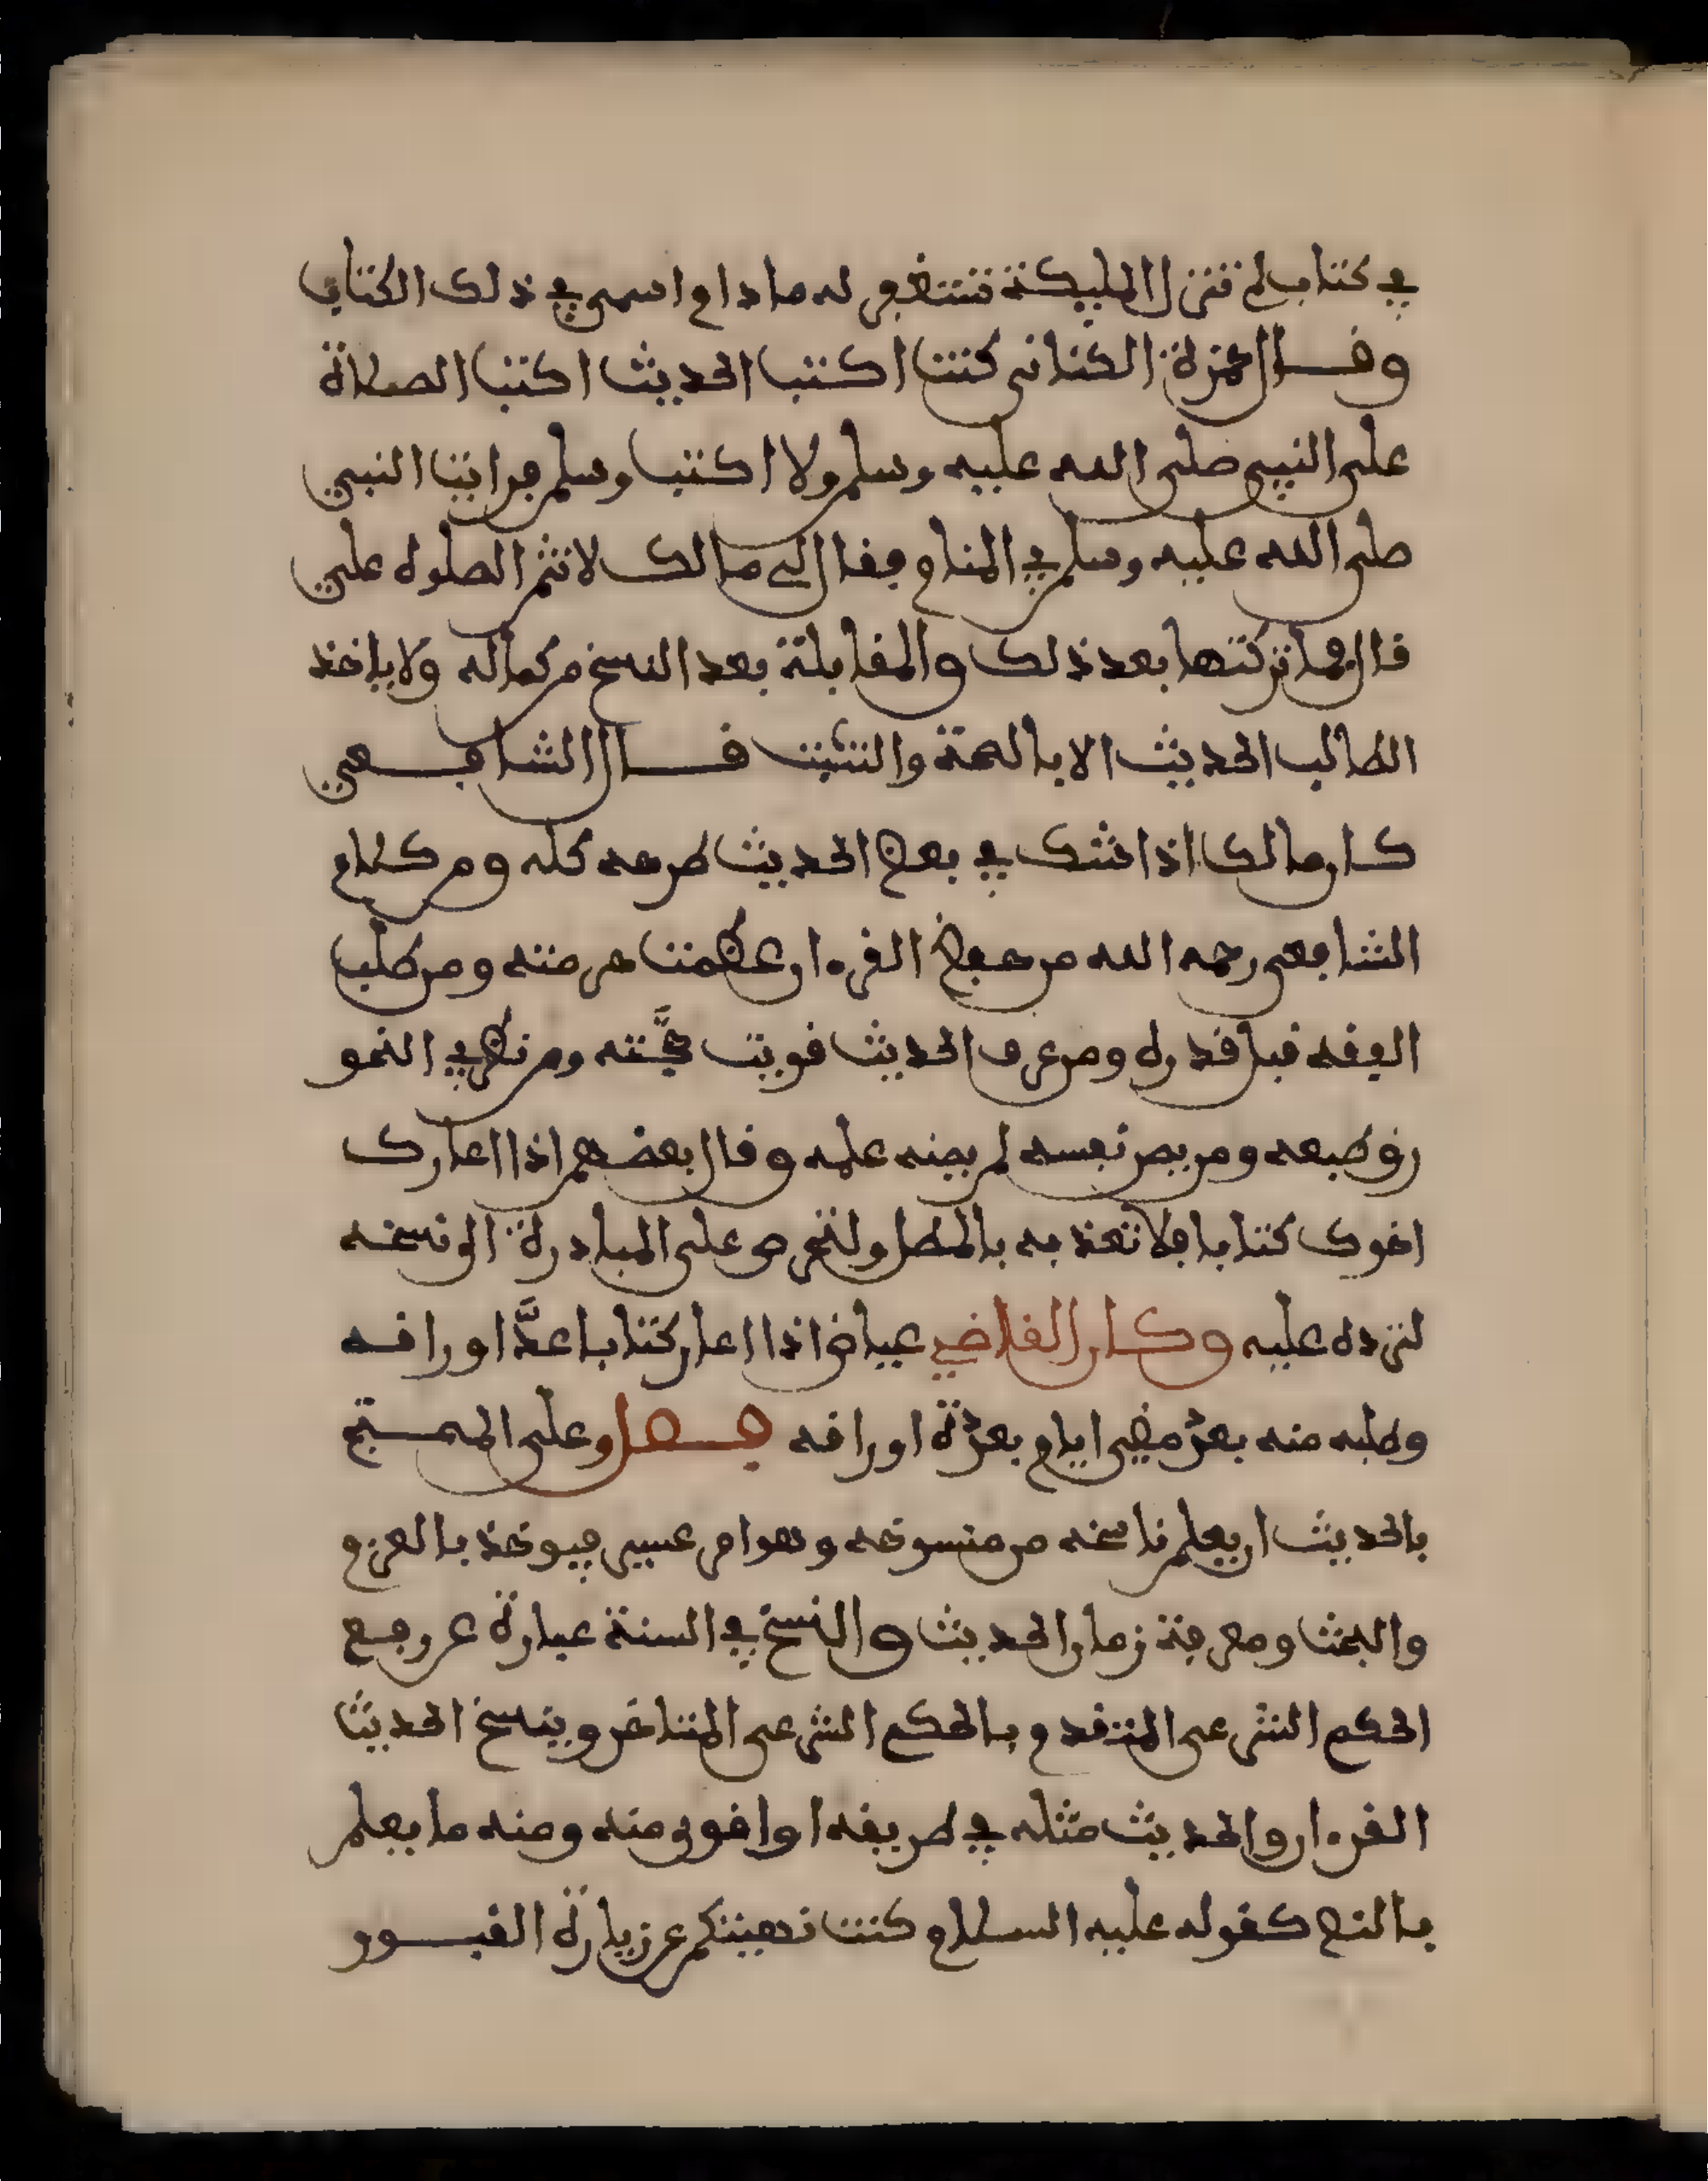 في كتاب لم تنزل المليكة تستغفر له ما دام اسمي في ذلك الكتاب
وقال حمزة الكناني كنت اكتب الحديث اكتب الصلاة
على النبي صلى الله عليه وسلم ولا اكتب وسلم فرايت النبي
صلى الله عليه وسلم في المنام فقال لي مالك لا تتم الصلوة علي
قال فما تركتها بعد ذلك والمقابلة بعد النسخ من كماله ولا ياخذ
الطالب الحديث الا بالصحة والتثبت قال الشافعي
كان مالك اذا شك في بعض الحديث طرحه كله ومن كلام
الشافعي رحمه الله من حفظ القرءان عظمت حرمته ومن طلب
الفقه نبل قدره ومن عرف الحديث قويت حجَّته ومن نظر في النحو
رق طبعه ومن يصن نفسه لم يصنه علمه وقال بعضهم اذا اعارك
اخوك كتابا فلا تعذبه بالمطل ولتحرص على المبادرة الى نسخه
لترده عليه وكان القاضي عياض اذا اعار كتابا عدَّ اوراقه
وطلبه منه بعد مضي ايام بعدة اوراقه فصل وعلى المحتج
بالحديث ان يعلم ناسخه من منسوخه وهو امر عسير فيوخذ بالعزم
والبحث ومعرفة زمان الحديث والنسخ في السنة عبارة عن رفع
الحكم الشرعي المتقدم بالحكم الشرعي المتاخر وينسخ الحديث
القرءان والحديث مثله في طريقه او اقوى منه ومنه ما يعلم
بالنص كقوله عليه السلام كنت نهيتكم عن زيارة القبور